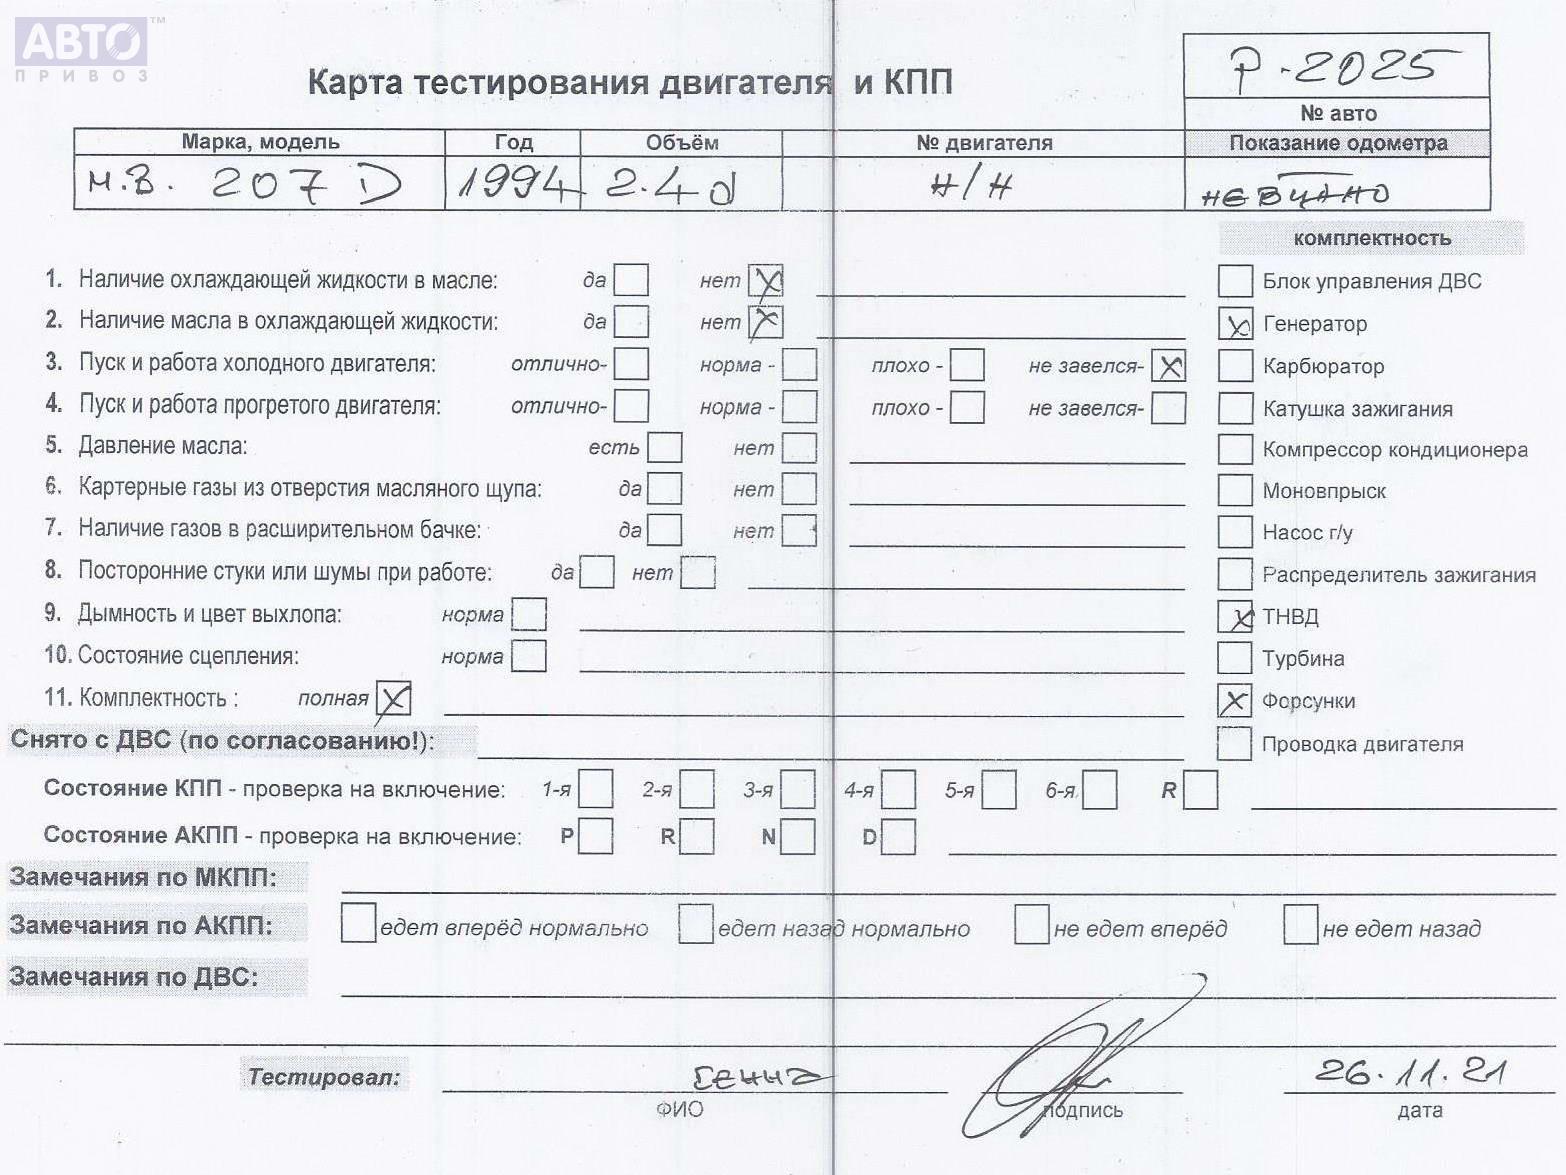 АВТО™
ПРИВОЗ
Карта тестирования двигателя и КПП
Р-2025
№ авто
Марка, модель Год Объём № двигателя Показание одометра
М.В. 207 D 1994 2.4d Н/Н не видно
комплектность
1. Наличие охлаждающей жидкости в масле: да нет X Блок управления ДВС
2. Наличие масла в охлаждающей жидкости: да нет X X Генератор
3. Пуск и работа холодного двигателя: отлично- норма - плохо - не завелся- X Карбюратор
4. Пуск и работа прогретого двигателя: отлично- норма - плохо - не завелся- Катушка зажигания
5. Давление масла: есть нет Компрессор кондиционера
6. Картерные газы из отверстия масляного щупа: да нет Моновпрыск
7. Наличие газов в расширительном бачке: да нет Насос г/у
8. Посторонние стуки или шумы при работе: да нет Распределитель зажигания
9. Дымность и цвет выхлопа: норма X ТНВД
10. Состояние сцепления: норма Турбина
11. Комплектность : полная X X Форсунки
Снято с ДВС (по согласованию!): Проводка двигателя
Состояние КПП - проверка на включение: 1-я 2-я 3-я 4-я 5-я 6-я R
Состояние АКПП - проверка на включение: P R N D
Замечания по МКПП:
Замечания по АКПП: едет вперёд нормально едет назад нормально не едет вперёд не едет назад
Замечания по ДВС:
Тестировал: Генна 26.11.21
ФИО подпись дата